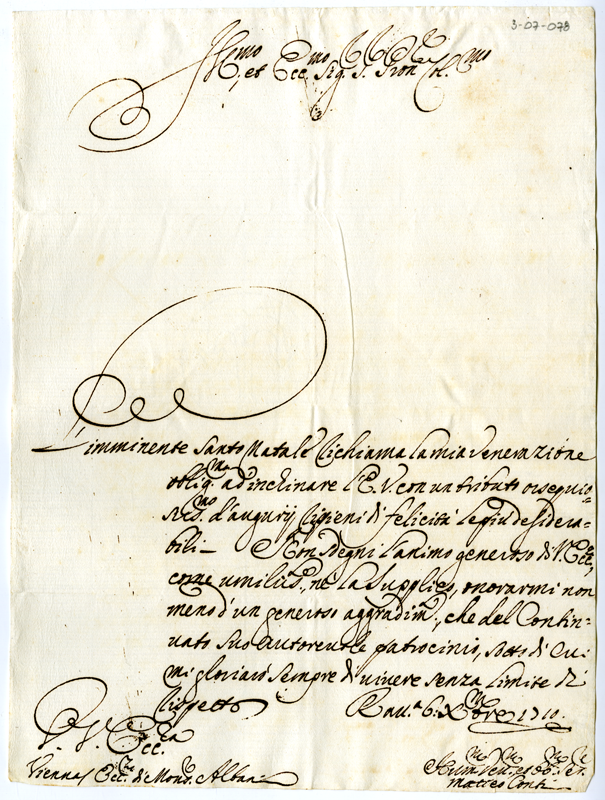 3-07-078
Ill.mo, et Ecc.mo Sig. S. Pron Col.mo
L'imminente Santo Natale richiama la mia venerazione
oblig.ma ad inchinare l'E. V. con un tributo ossequio-
siss.mo d'augurij ripieni di felicità le più desidera-
bili — Non sdegni l'animo generoso di V. Ecc.,
come umiliss.e ne la supplico, onorarmi non
meno d'un generoso aggradim.to, che del Conti-
nuato suo autoreuole patrocinio, sotto di cui
mi gloriarò sempre di uiuere senza limite di
rispetto Rau.a 6: Xmbre 1710.
V. Ecc.za
Vienna Ecc. di Mons. Albani
Matteo Conti